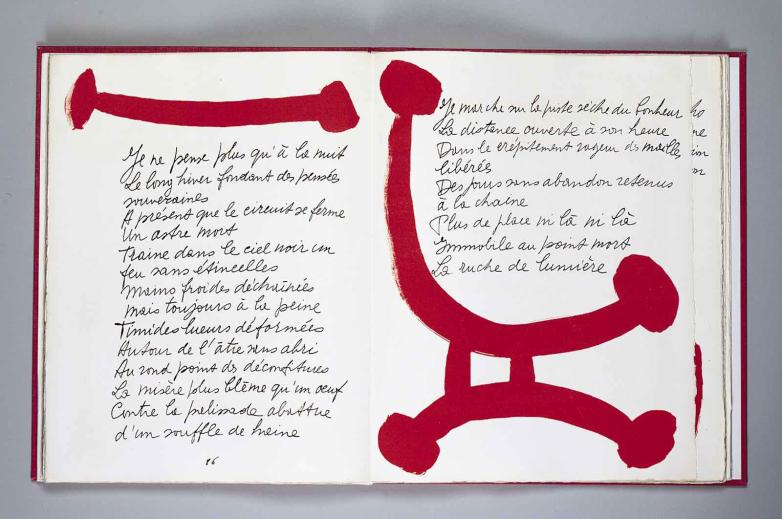 Je ne pense plus qu'à la nuit
Le long hiver fondant des pensées
souveraines
A présent que le circuit se ferme
Un astre mort
Traine dans le ciel noir un
feu sans étincelles
Mains froides déchaînées
Mais toujours à la peine
Timides lueurs déformées
Autour de l'âtre sans abri
Au rond point des déconfitures
La misère plus blême qu'un œuf
Contre la palissade abattue
d'un souffle de haine
26
Je marche sur la piste sèche du bonheur
La distance ouverte à son heure
Dans le crépitement rageur des mailles
libérées
Des jours sans abandon retenus
à la chaine
Plus de place ni là ni là
Immobile au point mort
La ruche de lumière